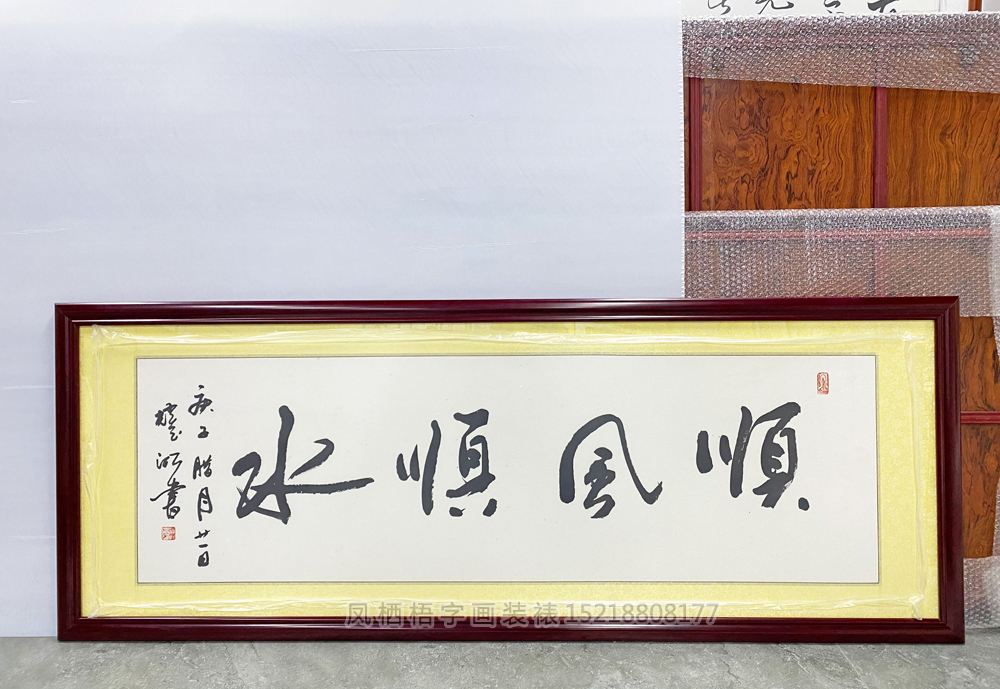 順風順水
庚子腊月廿一日
書
凤栖梧字画装裱15218808177